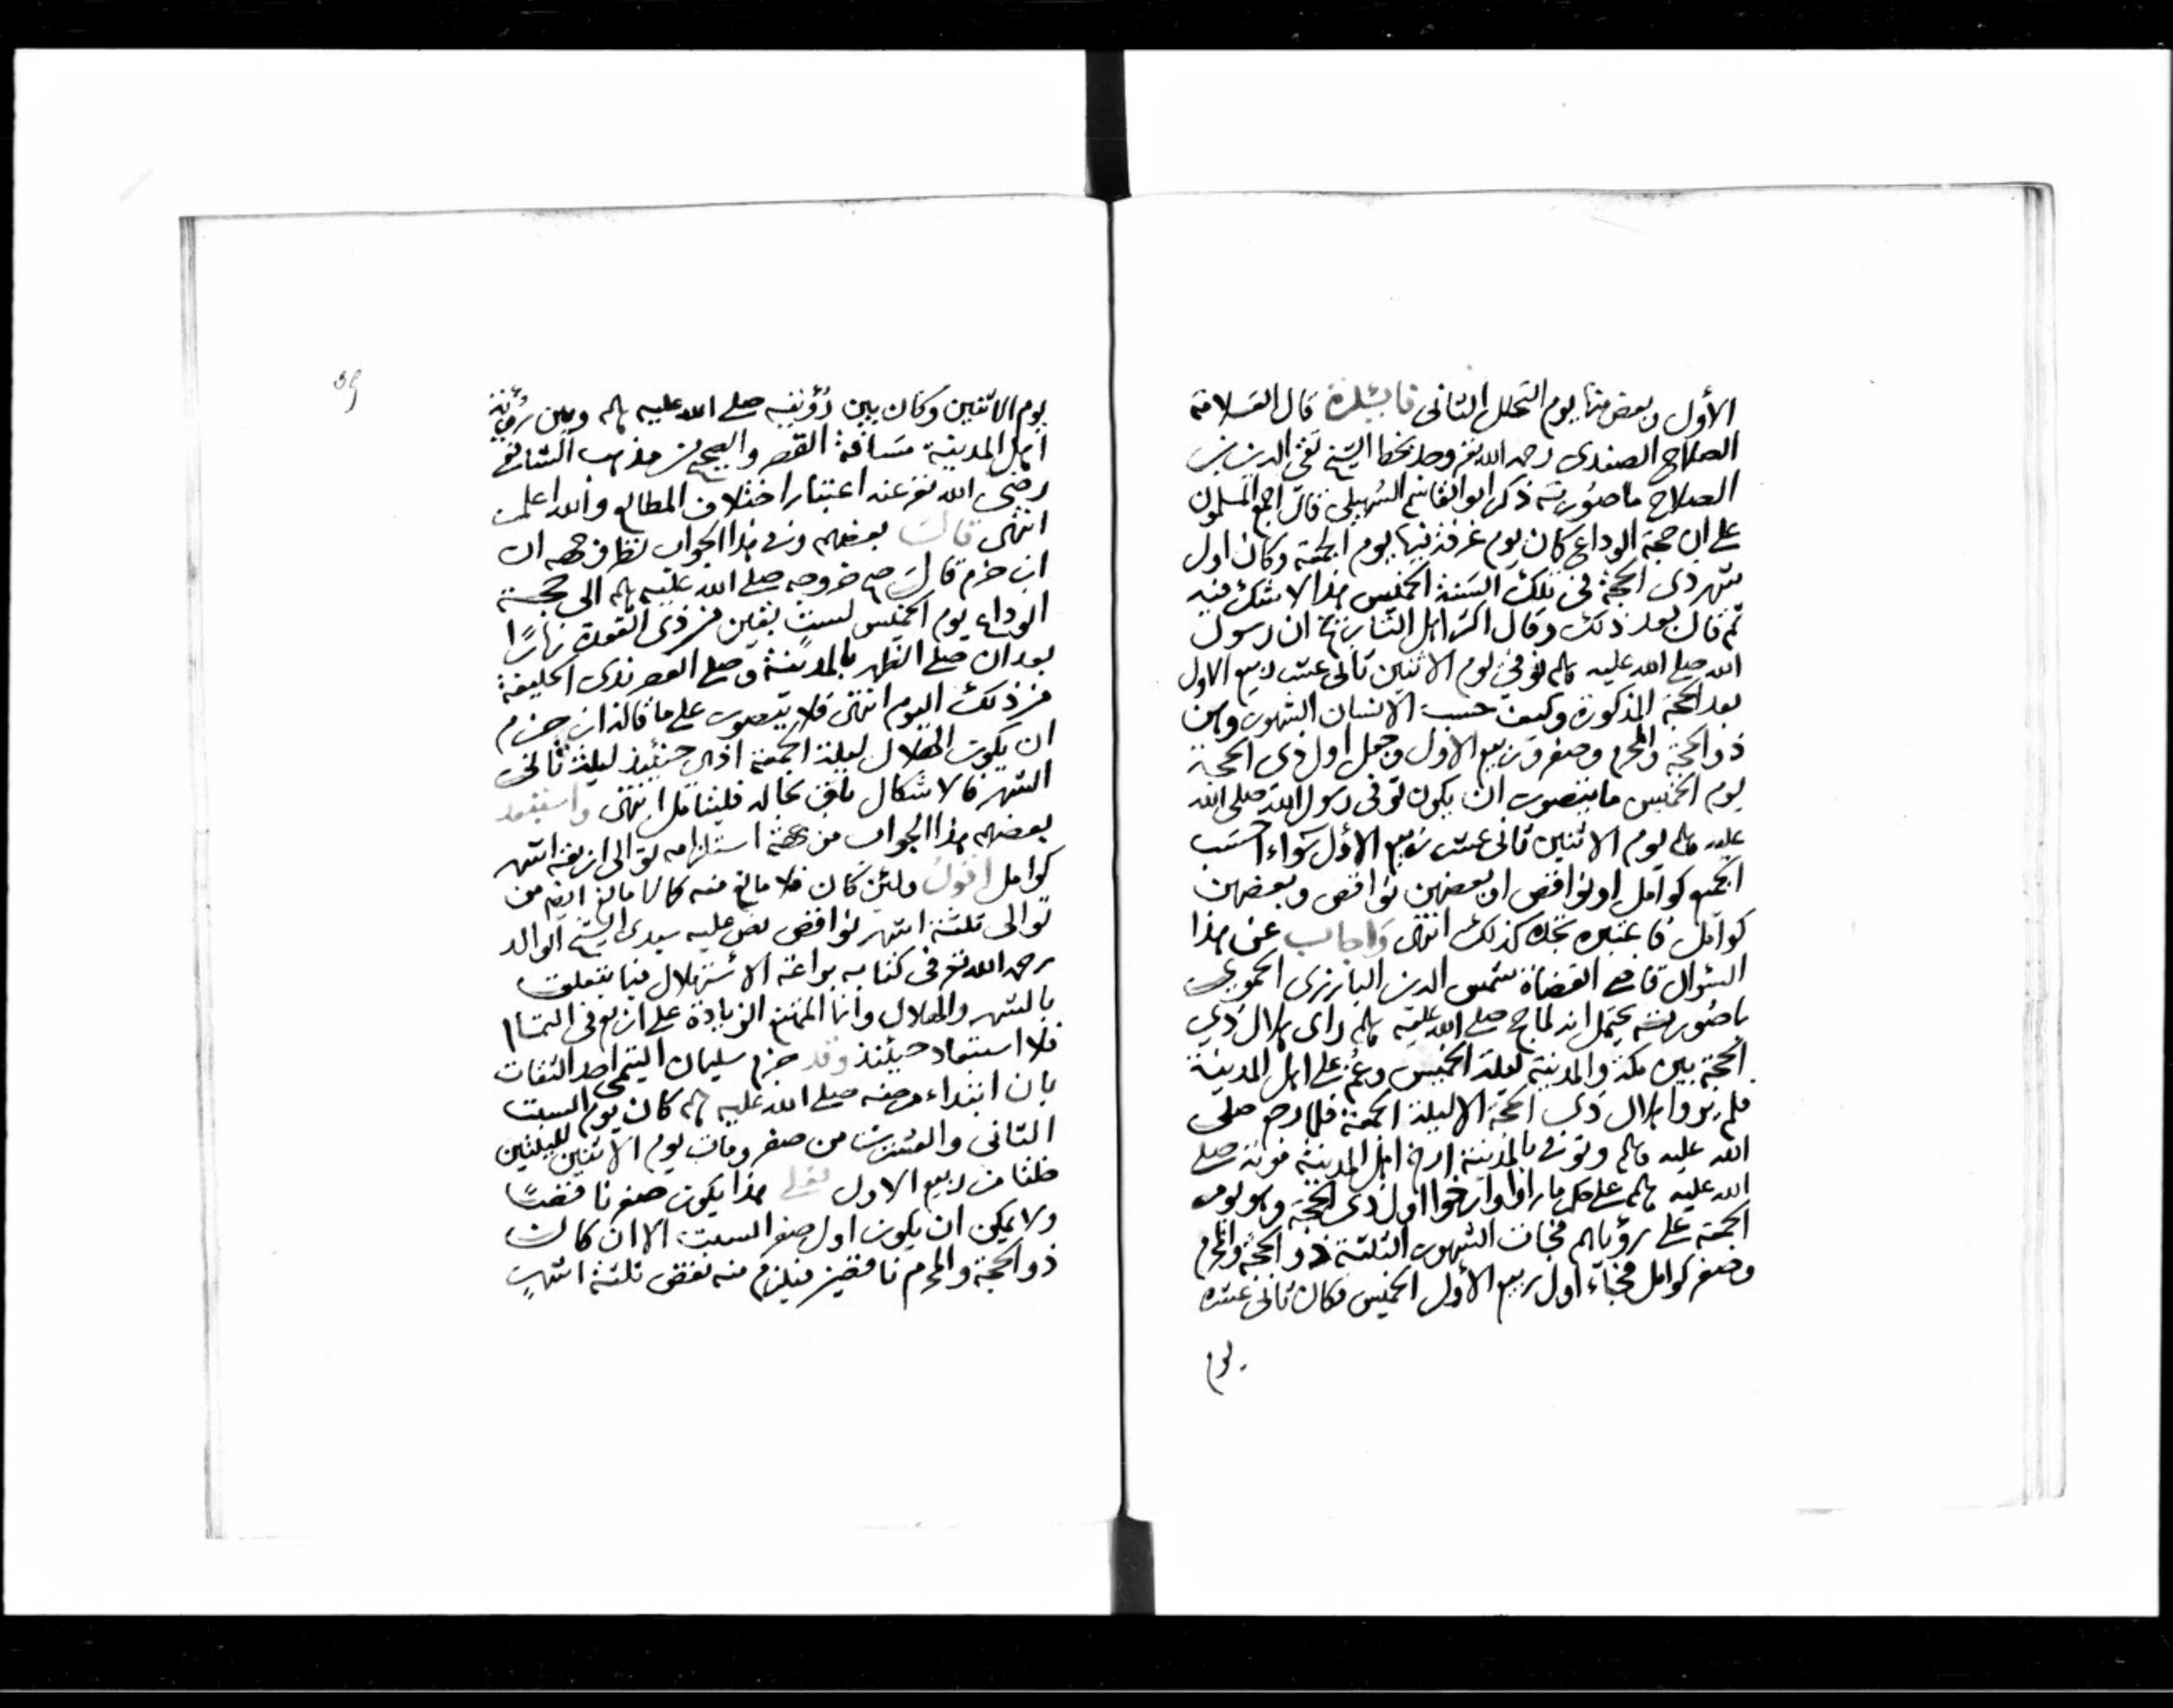 الأول وبعض منها يوم التحلل الثانى فائدة قال العلامة
الصلاح الصفدى رحمه الله تعـ وجد بخط الشيخ تقى الدين بن
الصلاح ما صورته ذكر ابو القاسم السهيلى قال اجمع المسلمون
على ان حجة الوداع كان يوم عرفة فيها يوم الجمعة وكان اول
شهر ذى الحجة فى تلك السنة الخميس هذا لا شك فيه
ثم قال بعد ذلك وقال اكثر اهل التاريخ ان رسول
الله صلى الله عليه وسلم توفى يوم الاثنين ثانى عشر ربيع الاول
بعد الحجة المذكورة وكيف حسب الانسان الشهور وهن
ذو الحجة والمحرم وصفر وربيع الاول وجعل اول ذى الحجة
يوم الخميس ما يتصور ان يكون توفى رسول الله صلى الله
عليه وسلم يوم الاثنين ثانى عشر ربيع الأول سواء احسب
الجميع كوامل او نواقص او بعضهن نواقص وبعضهن
كوامل فاعتبره تجده كذلك انتهى واجاب عن هذا
السؤال قاضى القضاة شمس الدين البارزى الحموى
ما صورته يحتمل انه لما حج صلى الله عليه وسلم راى هلال ذى
الحجة بين مكة والمدينة ليلة الخميس وغم على اهل المدينة
فلم يروا هلال ذى الحجة الا ليلة الجمعة فلما رجع صلى
الله عليه وسلم وتوفى بالمدينة ارخ اهل المدينة موته صلى
الله عليه وسلم على حكم ما راوا وارخوا اول ذى الحجة وهو يوم
الجمعة على رؤياهم فجات الشهور الثلثة ذو الحجة والمحرم
وصفر كوامل فجاء اول ربيع الأول الخميس فكان ثانى عشره
يوم
يوم الاثنين وكان بين رؤيته صلى الله عليه وسلم وبين رؤية
اهل المدينة مسافة القصر والصحيح من مذهب الشافعى
رضى الله تعـ عنه اعتبار اختلاف المطالع والله اعلم
انتهى قالت بعضهم وفى هذا الجواب نظر وجهه ان
ابن حزم قال صح خروجه صلى الله عليه وسلم الى حجة
الوداع يوم الخميس لست بقين من ذى القعدة نهارًا
بعد ان صلى الظهر بالمدينة وصلى العصر بذى الحليفة
من ذلك اليوم انتهى فلا يتصور على ما قاله ابن حزم
ان يكون الهلال ليلة الجمعة اذ هى حينئذ ليلة ثانى
الشهر فالاشكال باق بحاله فليتامل انتهى واستبعد
بعضهم هذا الجواب من جهة استلزامه توالى اربعة اشهر
كوامل اقول ولئن كان فلا مانع منه كما لا مانع ايضا من
توالى ثلثة اشهر نواقص نص عليه سيدى الشيخ الوالد
رحمه الله تعـ فى كتابه براعة الاستهلال فيما يتعلق
بالشهر والهلال وانما الممتنع الزيادة على اربع فى التمام
فلا استبعاد حينئذ وقد جزم سليمان التيمى احد الثقات
بان ابتداء مرضه صلى الله عليه وسلم كان يوم السبت
الثانى والعشرين من صفر ومات يوم الاثنين لليلتين
خلتا من ربيع الاول فعلى هذا يكون صفر ناقصًا
ولا يمكن ان يكون اول صفر السبت الا ان كان
ذو الحجة والمحرم ناقصين فيلزم منه نقص ثلثة اشهر